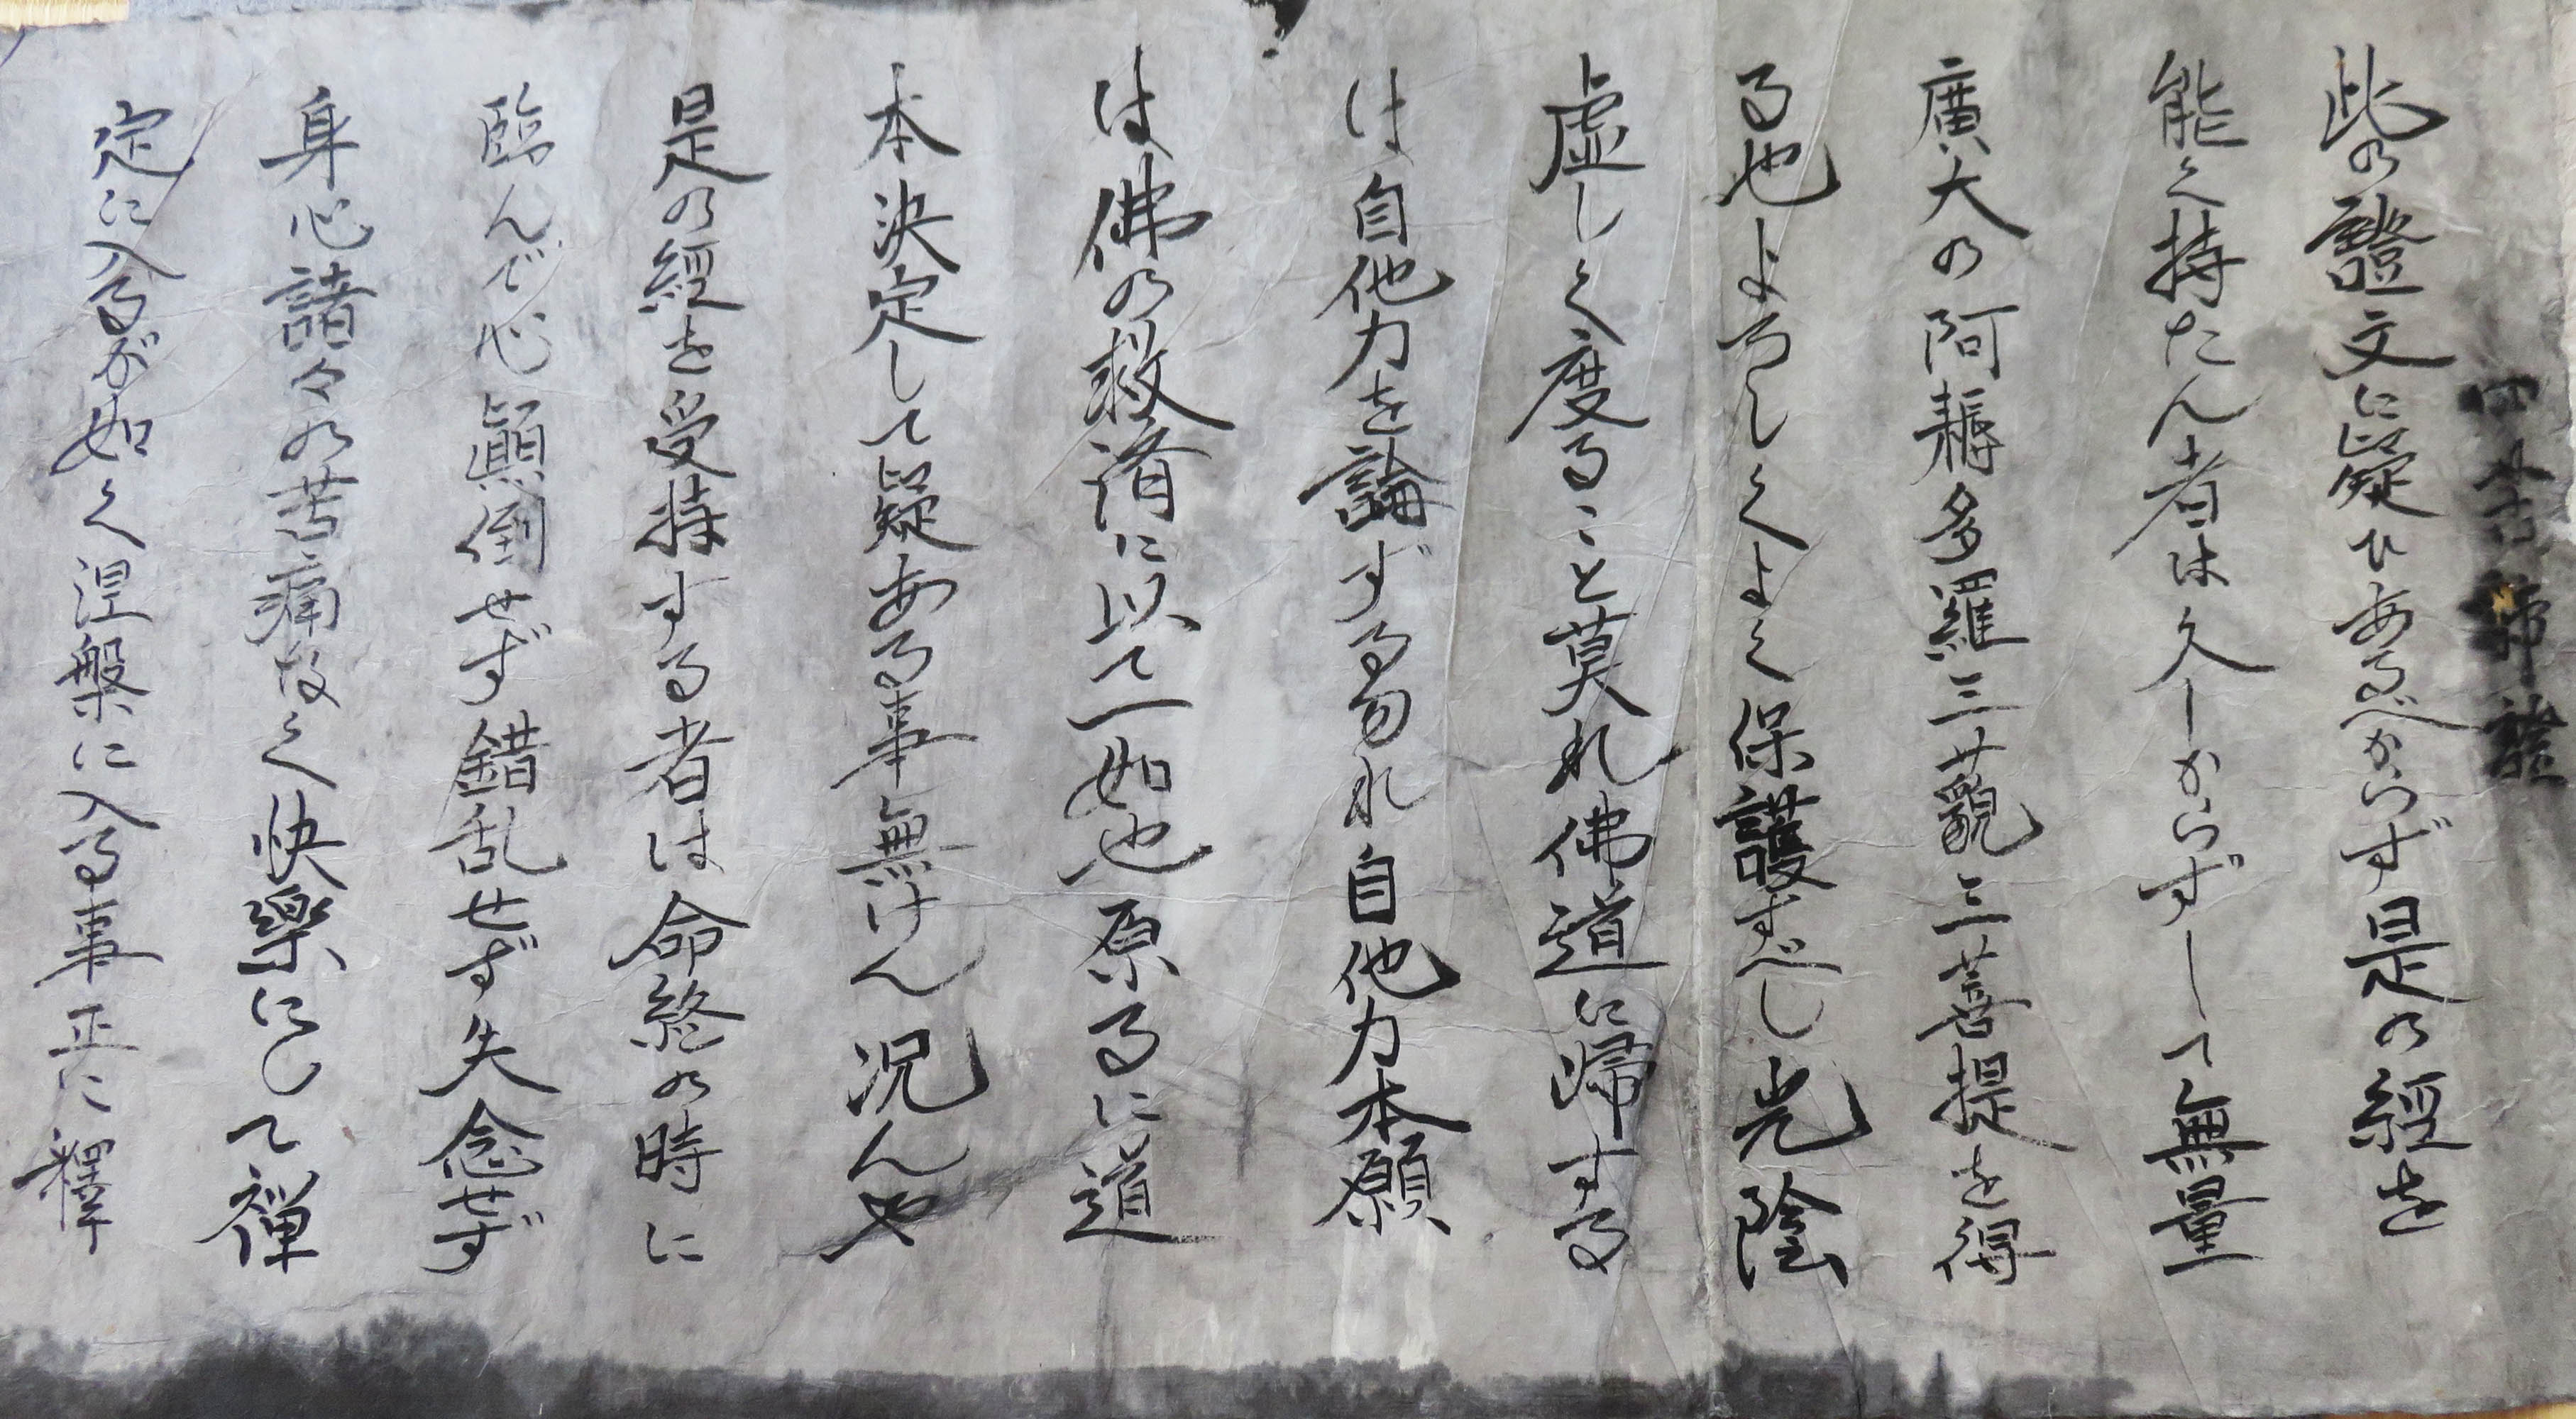 此の證文に疑ひあるべからず是の經を
能く持たん者は久しからずして無量
廣大の阿耨多羅三藐三菩提を得
る也よろしくよく保護すべし光陰
虚しく度ること莫れ佛道に歸する
は自他力を論ずる勿れ自他力本願
は佛の救済に以て一如也原るに道
本決定して疑ある事無けん況んや
是の經を受持する者は命終の時に
臨んで心顚倒せず錯乱せず失念せず
身心諸々の苦痛なく快樂にして禅
定に入るが如く涅槃に入る事正に釋